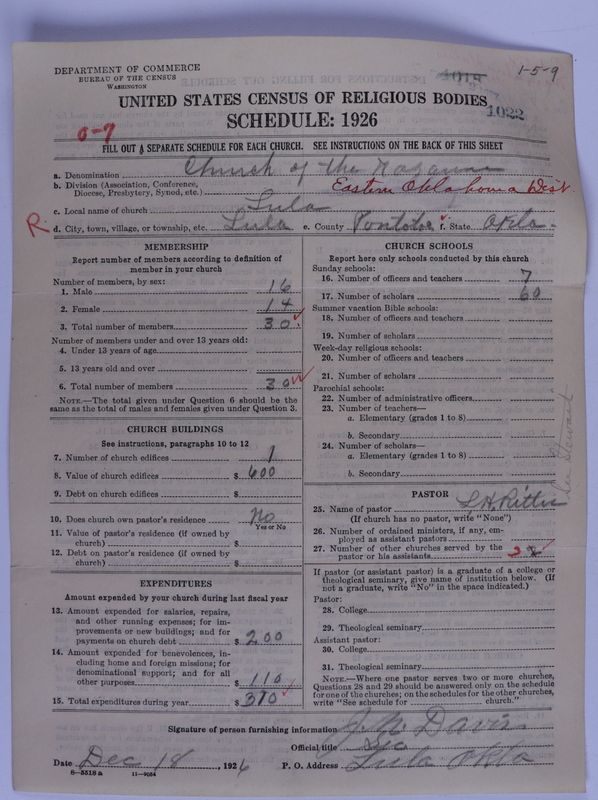 DEPARTMENT OF COMMERCE
BUREAU OF THE CENSUS
WASHINGTON
1-5-9
1022
UNITED STATES CENSUS OF RELIGIOUS BODIES
SCHEDULE: 1926
0-7
FILL OUT A SEPARATE SCHEDULE FOR EACH CHURCH. SEE INSTRUCTIONS ON THE BACK OF THIS SHEET
a. Denomination Church of the Nazarene
b. Division (Association, Conference, Diocese, Presbytery, Synod, etc.) Eastern Oklahoma West.
c. Local name of church Lula
R d. City, town, village, or township, etc. Lula e. County Pontotoc f. State Okla-
MEMBERSHIP
Report number of members according to definition of
member in your church
Number of members, by sex:
1. Male 16
2. Female 14
3. Total number of members 30
Number of members under and over 13 years old:
4. Under 13 years of age
5. 13 years old and over
6. Total number of members 30
NOTE.—The total given under Question 6 should be
same as the total of males and females given under Question 3.
CHURCH BUILDINGS
See instructions, paragraphs 10 to 12
7. Number of church edifices 1
8. Value of church edifices $ 600
9. Debt on church edifices $
10. Does church own pastor's residence No
Yes or No
11. Value of pastor's residence (if owned by
church) $
12. Debt on pastor's residence (if owned by
church) $
EXPENDITURES
Amount expended by your church during last fiscal year
13. Amount expended for salaries, repairs,
and other running expenses; for im-
provements or new buildings; and for
payments on church debt $ 200
14. Amount expended for benevolences, in-
cluding home and foreign missions; for
denominational support; and for all
other purposes $ 110
15. Total expenditures during year $ 310
CHURCH SCHOOLS
Report here only schools conducted by this church
Sunday schools:
16. Number of officers and teachers 7
17. Number of scholars 60
Summer vacation Bible schools:
18. Number of officers and teachers
19. Number of scholars
Week-day religious schools:
20. Number of officers and teachers
21. Number of scholars
Parochial schools:
22. Number of administrative officers
23. Number of teachers—
a. Elementary (grades 1 to 8)
b. Secondary
24. Number of scholars—
a. Elementary (grades 1 to 8)
b. Secondary
Stewart
PASTOR
25. Name of pastor L.H. Ritter
(If church has no pastor, write "None")
26. Number of ordained ministers, if any, em-
ployed as assistant pastors
27. Number of other churches served by the
pastor or his assistants 2
If pastor (or assistant pastor) is a graduate of a college or
theological seminary, give name of institution below. (If
not a graduate, write "No" in the space indicated.)
Pastor:
28. College
29. Theological seminary
Assistant pastor:
30. College
31. Theological seminary
NOTE.—Where one pastor serves two or more churches,
Questions 28 and 29 should be answered only on the schedule
for one of the churches; on the schedules for the other churches,
write "See schedule for church."
Signature of person furnishing information J. N. Davis
Official title Sec
Date Dec 18, 1926 P. O. Address Lula Okla
8-5518 a 11-9034